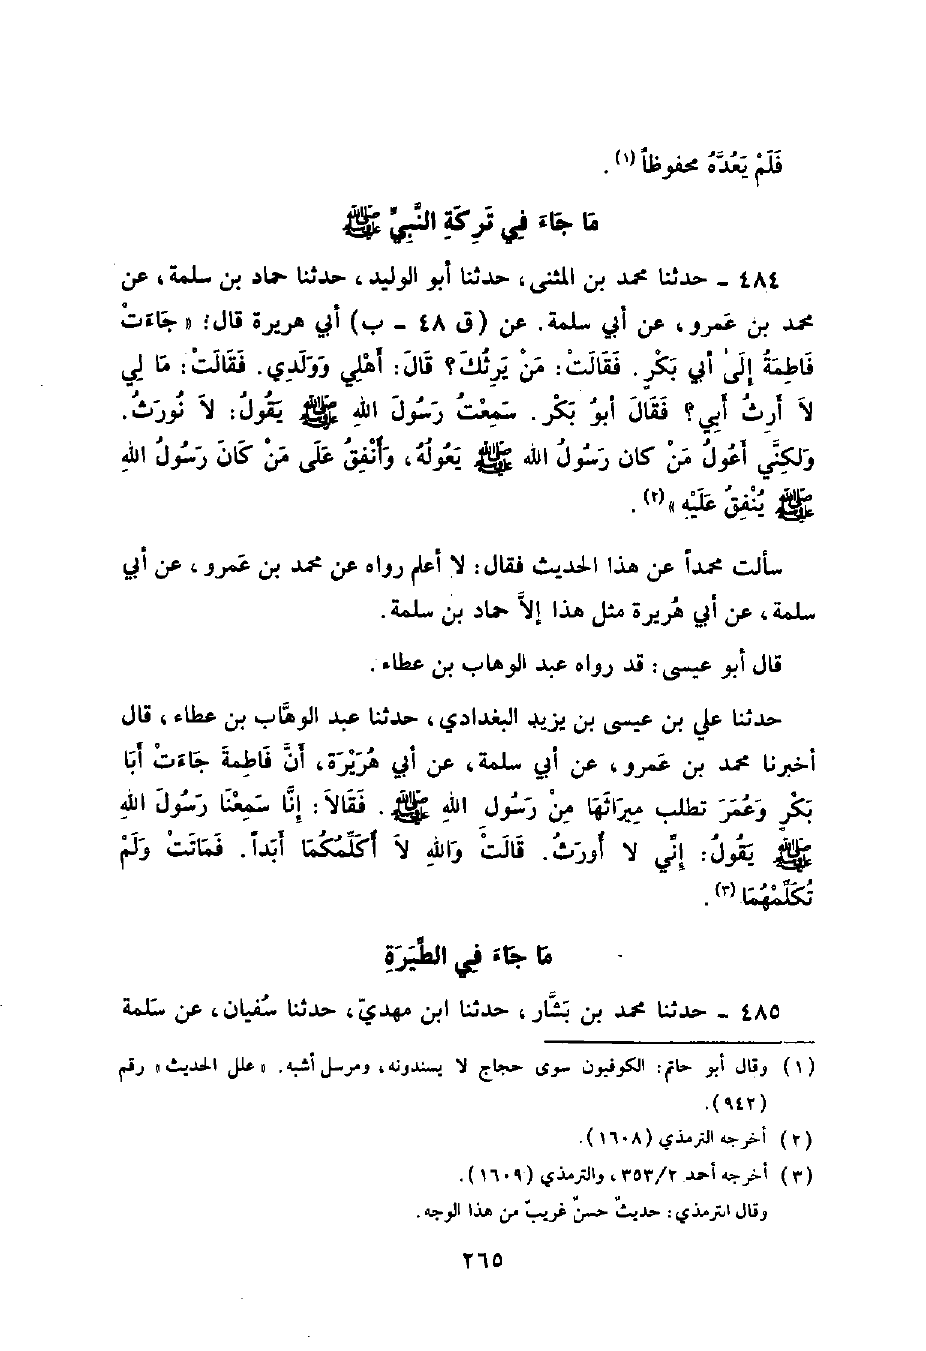 فَلَمْ يَعُدَّهُ محفوظاً (١) .
مَا جَاءَ فِي تَرِكَةِ النَّبِيِّ ﷺ
٤٨٤ ـ حدثنا محمد بن المثنى، حدثنا أبو الوليد، حدثنا حماد بن سلمة، عن
محمد بن عمرو، عن أبي سلمة. عن (ق ٤٨ ـ ب) أبي هريرة قال: «جَاءَتْ
فَاطِمَةُ إِلَىٰ أبي بَكْرٍ. فَقَالَتْ: مَنْ يَرِثُكَ؟ قَالَ: أَهْلِي وَوَلَدِي. فَقَالَتْ: مَا لِي
لاَ أَرِثُ أَبِي؟ فَقَالَ أبوُ بَكْر. سَمِعْتُ رَسُولَ اللهِ ﷺ يَقُولُ: لاَ نُورَثُ.
وَلكِنَّي أَعُولُ مَنْ كان رَسُولُ الله ﷺ يَعُولُهُ، وَأَنْفِقُ عَلَى مَنْ كَانَ رَسُولُ اللهِ
ﷺ يُنْفِقُ عَلَيْهِ»(٢) .
سألت محمداً عن هذا الحديث فقال: لا أعلم رواه عن محمد بن عمرو، عن أبي
سلمة، عن أبي هُريرة مثل هذا إلاَّ حماد بن سلمة.
قال أبو عيسى: قد رواه عبد الوهاب بن عطاء.
حدثنا علي بن عيسى بن يزيد البغدادي، حدثنا عبد الوهَّاب بن عطاء، قال
أخبرنا محمد بن عَمرو، عن أبي سلمة، عن أبي هُرَيْرَة، أَنَّ فَاطِمةَ جَاءَتْ أبَا
بَكْرٍ وَعُمَرَ تطلب مِيرَاثَهَا مِنْ رَسُول اللهِ ﷺ. فَقَالاَ: إِنَّا سَمِعْنَا رَسُولَ اللهِ
ﷺ يَقُولُ: إِنِّي لا أُورَثُ. قَالَتْ وَاللهِ لاَ أُكَلِّمُكُمَا أَبَداً. فَمَاتَتْ وَلَمْ
تُكَلِّمْهُمَا (٣) .
مَا جَاءَ فِي الطَّيَرَةِ
٤٨٥ ـ حدثنا محمد بن بَشَّار، حدثنا ابن مهديّ، حدثنا سُفيان، عن سَلمة
(١) وقال أبو حاتم: الكوفيون سوى حجاج لا يسندونه، ومرسل أشبه. «علل الحديث» رقم
(٩٤٢).
(٢) أخرجه الترمذي (١٦٠٨).
(٣) أخرجه أحمد ٣٥٣/٢، والترمذي (١٦٠٩).
وقال الترمذي: حديثٌ حسنٌ غريبٌ من هذا الوجه.
٢٦٥